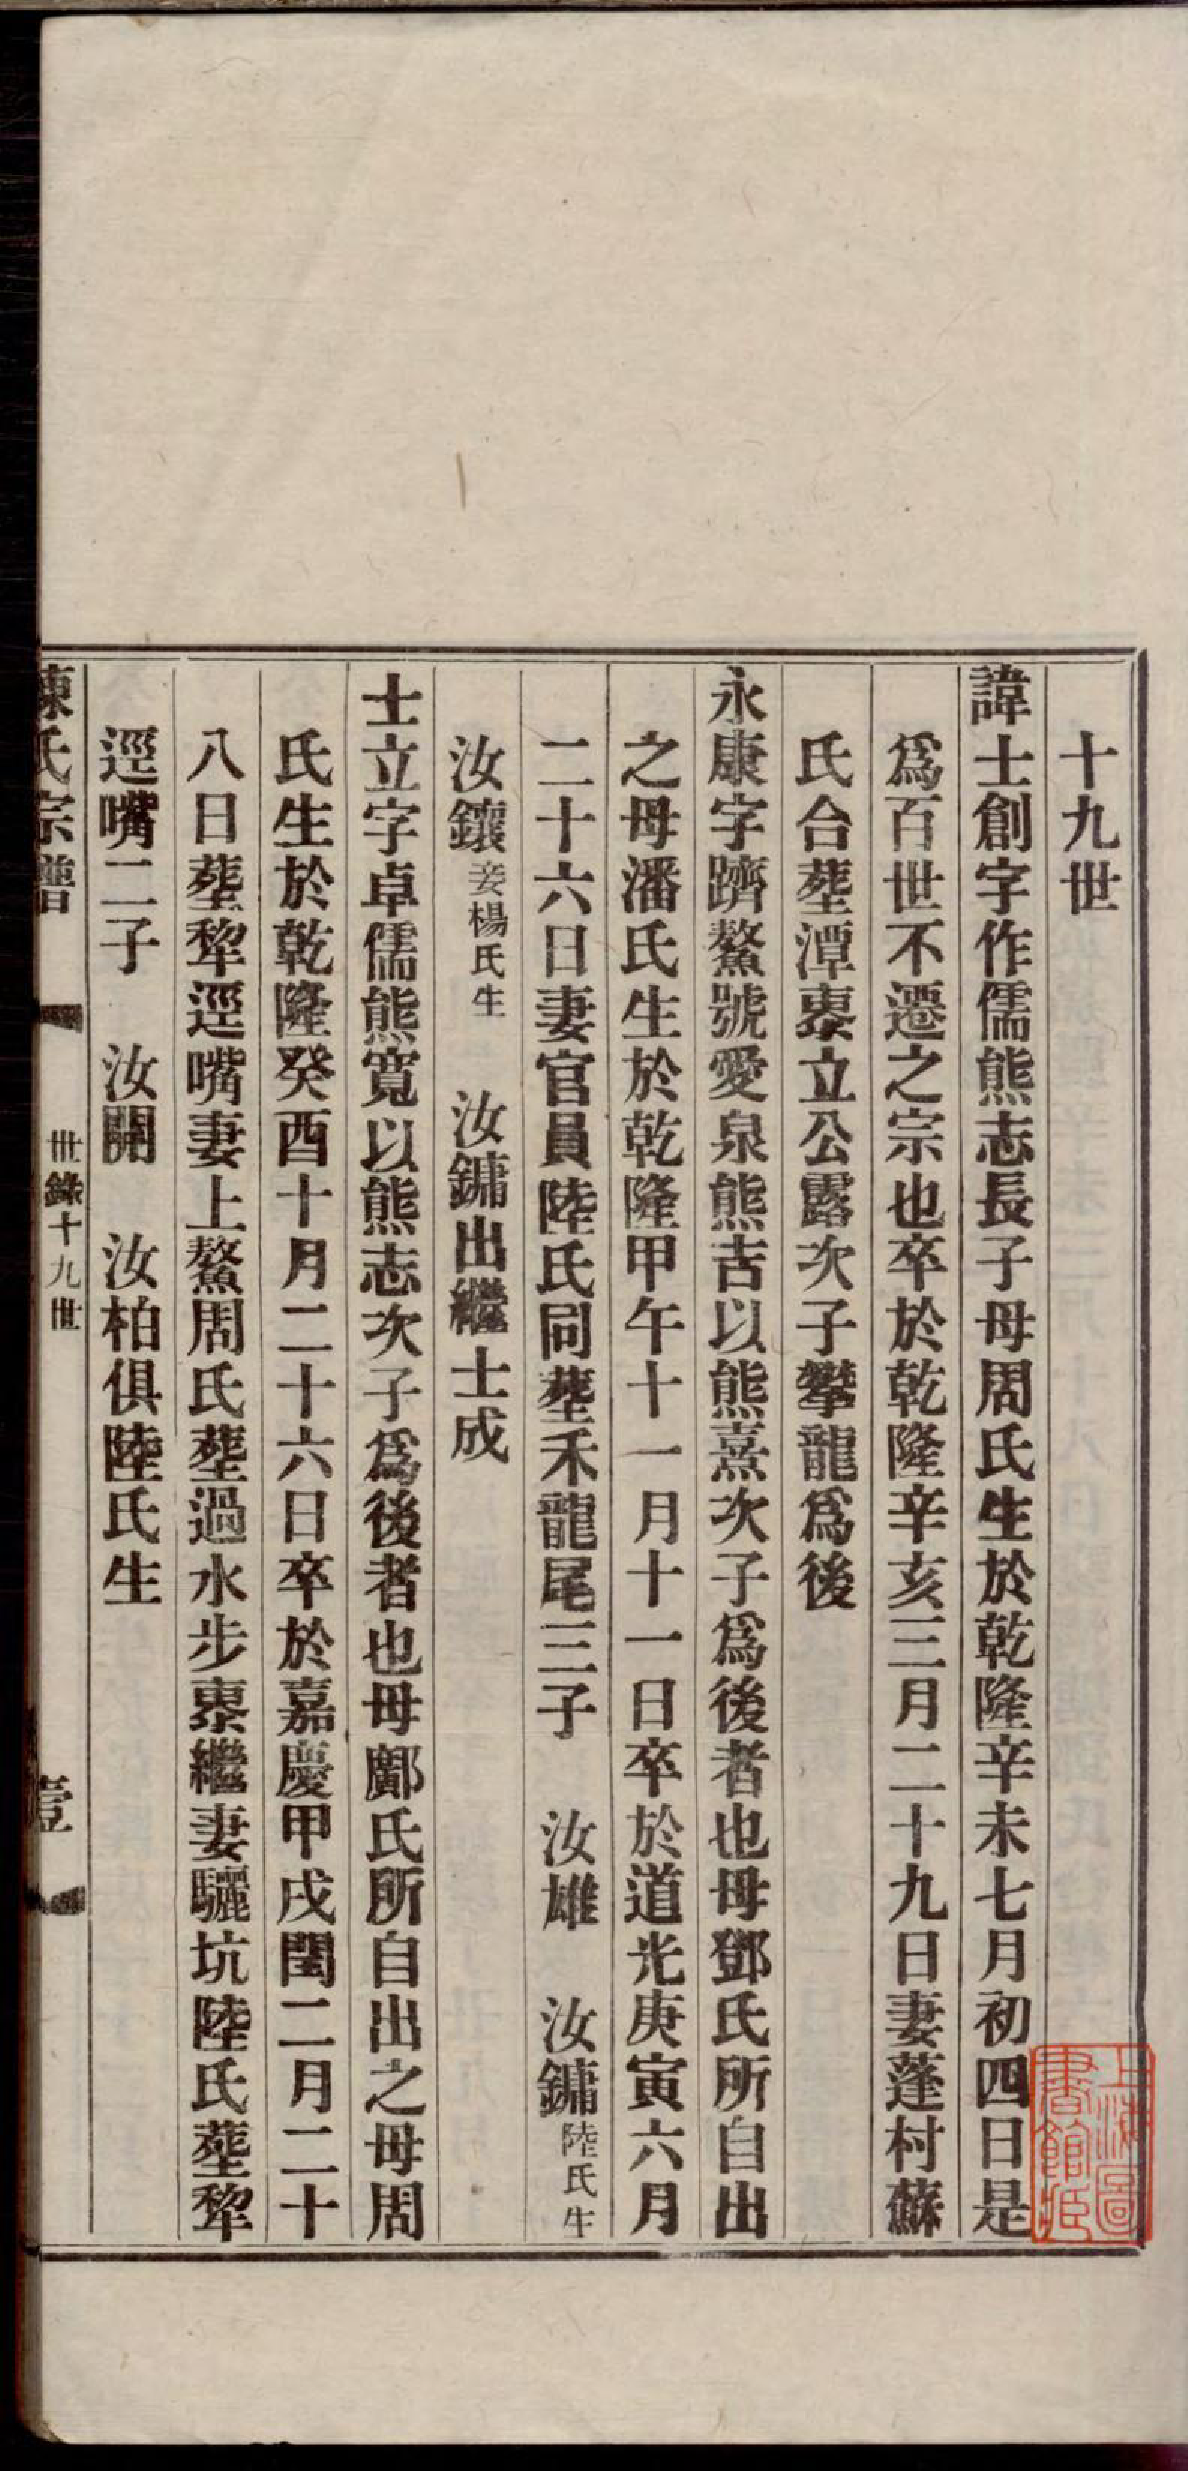 十九世
諱士創字作儒熊志長子母周氏生於乾隆辛未七月初四日是
爲百世不遷之宗也卒於乾隆辛亥三月二十九日妻蓬村蘇
氏合塟潭㐮立公露次子攀龍爲後
永康字躋鰲號愛泉熊吉以熊熹次子爲後者也母鄧氏所自出
之母潘氏生於乾隆甲午十一月十一日卒於道光庚寅六月
二十六日妻官員陸氏同塟禾龍尾三子　汝雄　汝鏞陸氏生
汝鑲妾楊氏生　汝鏞出繼士成
士立字卓儒熊寬以熊志次子爲後者也母鄺氏所自出之母周
氏生於乾隆癸酉十月二十六日卒於嘉慶甲戌閏二月二十
八日塟犂逕嘴妻上鰲周氏塟過水步㐮繼妻驪坑陸氏塟犂
逕嘴二子　汝關　汝柏俱陸氏生
陳氏宗譜　世錄十九世　壹
上海圖書館藏